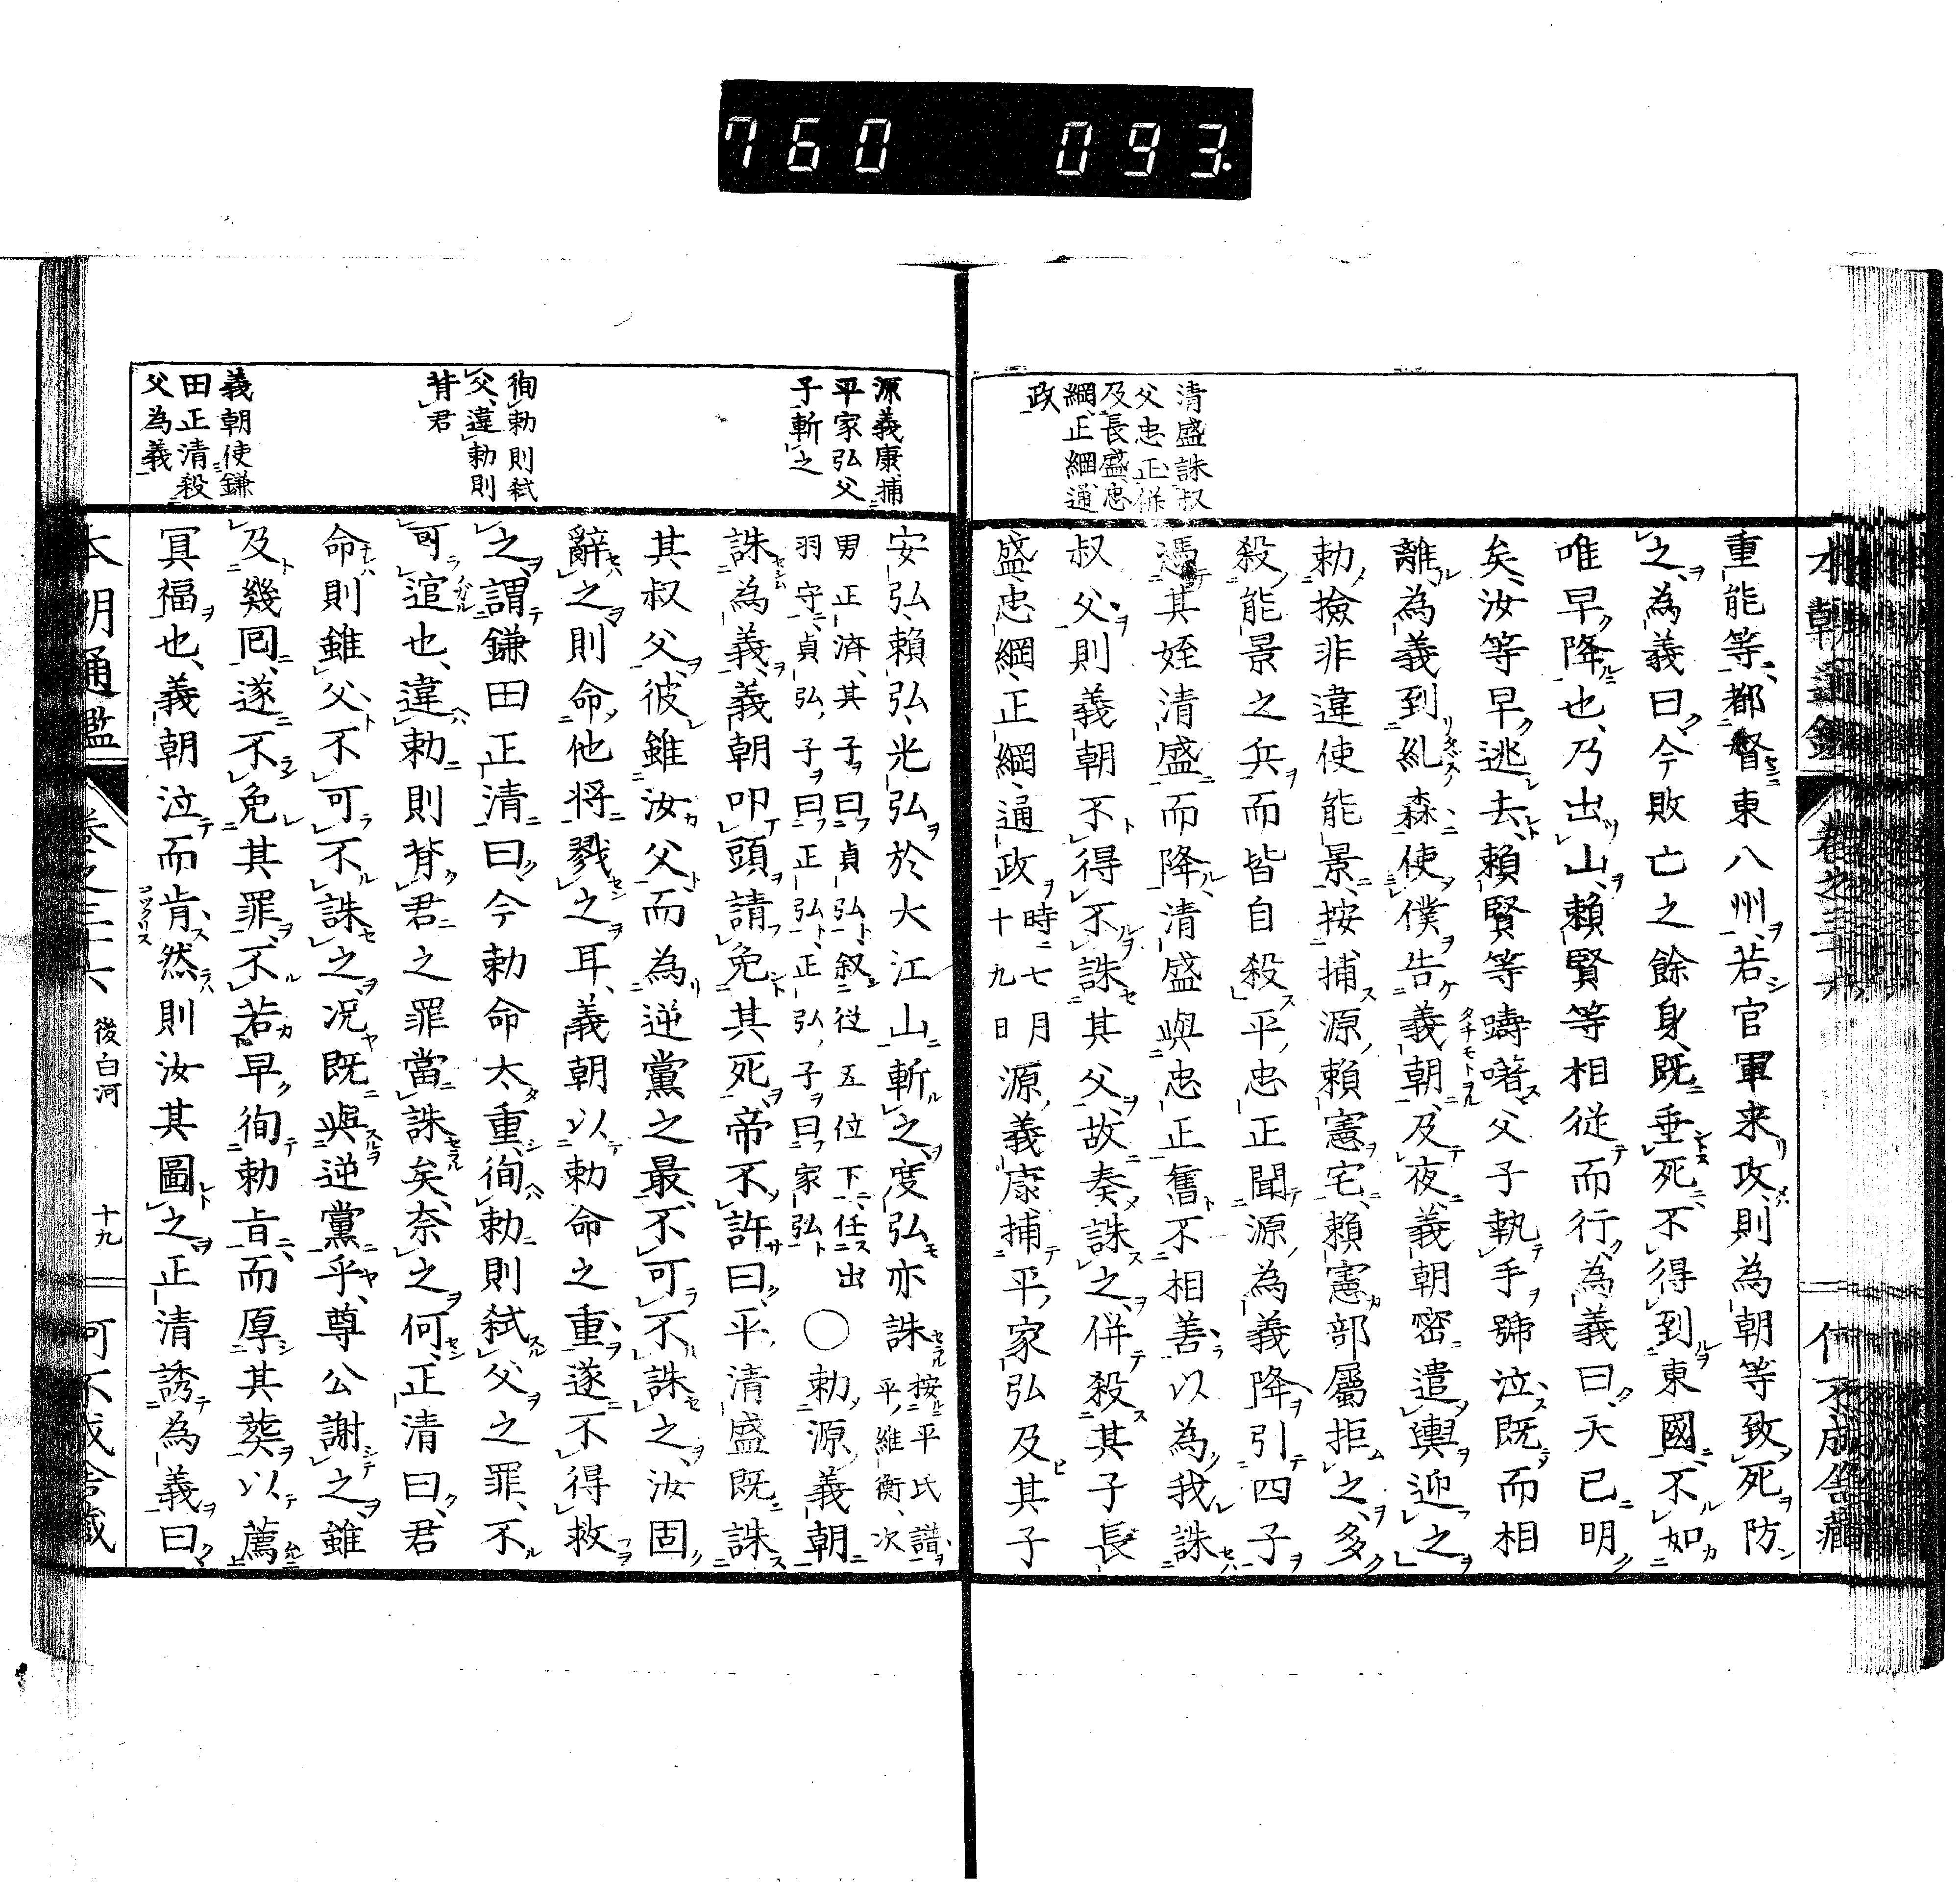 760 093.
清盛誅叔
父忠正併
及長盛忠
綱正綱通
政
重能等都督東八州若官軍来攻則為朝等致死防
之為義曰今敗亡之餘身既垂死不得到東國不如
唯早降也乃出山賴賢等相従而行為義曰天已明
矣汝等早逃去賴賢等躊躇父子執手號泣既而相
離為義到糺森使僕告義朝及夜義朝密遣輿迎之
勅撿非違使能景按捕源賴憲宅賴憲部屬拒之多
殺能景之兵而皆自殺平忠正聞源為義降引四子
憑其姪清盛而降清盛與忠正舊不相善以為我誅
叔父則義朝不得不誅其父故奏誅之併殺其子長
盛忠綱正綱通政時七月十九日源義康捕平家弘及其子
源義康捕
平家弘父
子斬之
徇勅則弑
父違勅則
背君
義朝使鎌
田正清殺
父為義
安弘賴弘光弘於大江山斬之度弘亦誅按平氏譜平維衡次
男正済其子曰貞弘叙従五位下任出
羽守貞弘子曰正弘正弘子曰家弘
○勅源義朝
誅為義義朝叩頭請免其死帝不許曰平清盛既誅
其叔父彼雖汝父而為逆黨之最不可不誅之汝固
辭之則命他將戮之耳義朝以勅命之重遂不得救
之謂鎌田正清曰今勅命太重徇勅則弑父之罪不
可逭也違勅則背君之罪當誅矣奈之何正清曰君
命則雖父不可不誅之况既與逆黨乎尊公謝之雖
及幾回遂不免其罪不若早徇勅旨而厚其葬以薦
冥福也義朝泣而肯然則汝其圖之正清誘為義曰
本朝通鑑 卷之三十六 後白河 十九